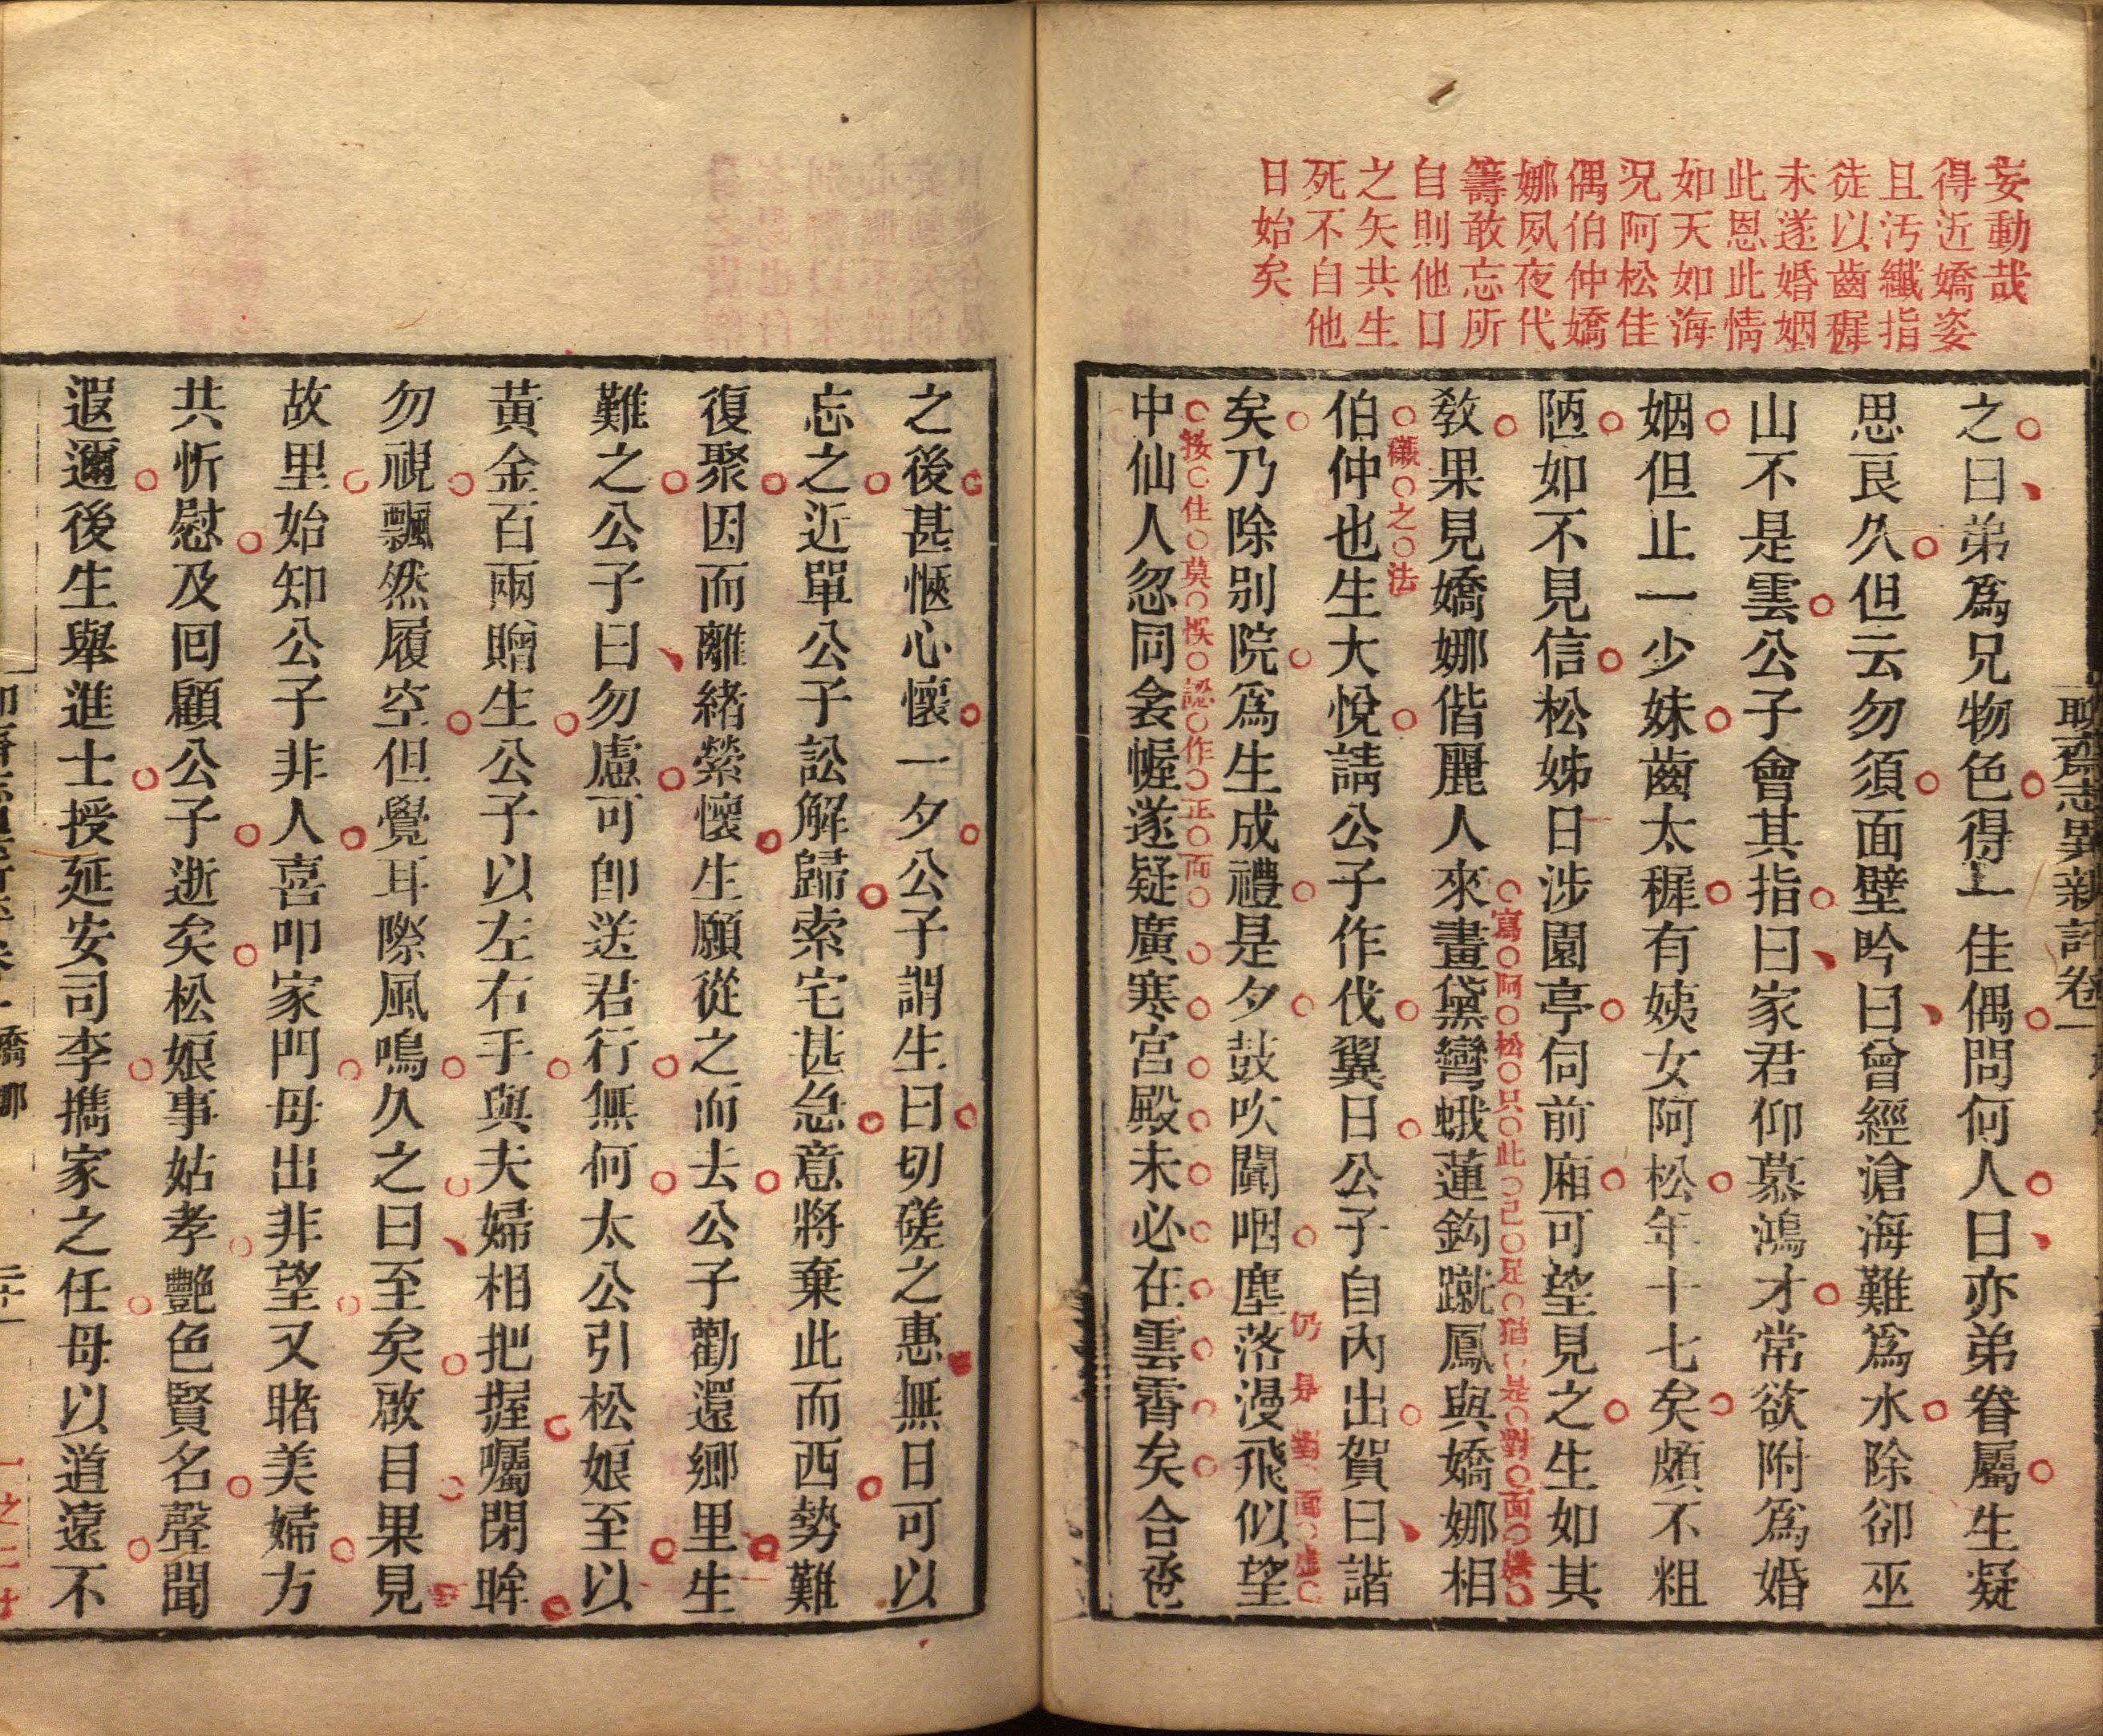 妄動哉
得近嬌姿
且汚纖指
徒以齒穉
未遂婚姻
此恩此情
如天如海
況阿松佳
偶伯仲嬌
娜夙夜代
籌敢忘所
自則他日
之矢共生
死不自他
日始矣
聊齋志異新評卷一
之曰弟爲兄物色得一佳偶問何人曰亦弟眷屬生凝
思良久但云勿須面壁吟曰曾經滄海難爲水除卻巫
山不是雲公子會其指曰家君仰慕鴻才常欲附爲婚
姻但止一少妹齒太穉有姨女阿松年十七矣頗不粗
陋如不見信松姊日涉園亭伺前廂可望見之生如其
寫阿松只此已足猶是對面
教果見嬌娜偕麗人來畫黛彎蛾蓮鈎蹴鳳與嬌娜相
襯之法
伯仲也生大悅請公子作伐翼日公子自內出賀曰諧
仍是對面
矣乃除別院爲生成禮是夕鼓吹闐咽塵落漫飛似望
接住莫悞認作正面
中仙人忽同衾幄遂疑廣寒宮殿未必在雲霄矣合卺
之後甚愜心懷一夕公子謂生曰切磋之惠無日可以
忘之近單公子訟解歸索宅甚急意將棄此而西勢難
復聚因而離緒縈懷生願從之而去公子勸還鄉里生
難之公子曰勿慮可卽送君行無何太公引松娘至以
黃金百兩贈生公子以左右手與夫婦相把握囑閉眸
勿視飄然履空但覺耳際風鳴久之曰至矣啟目果見
故里始知公子非人喜叩家門母出非望又睹美婦方
共忻慰及回顧公子逝矣松娘事姑孝艷色賢名聲聞
遐邇後生舉進士授延安司李攜家之任母以道遠不
嬌娜